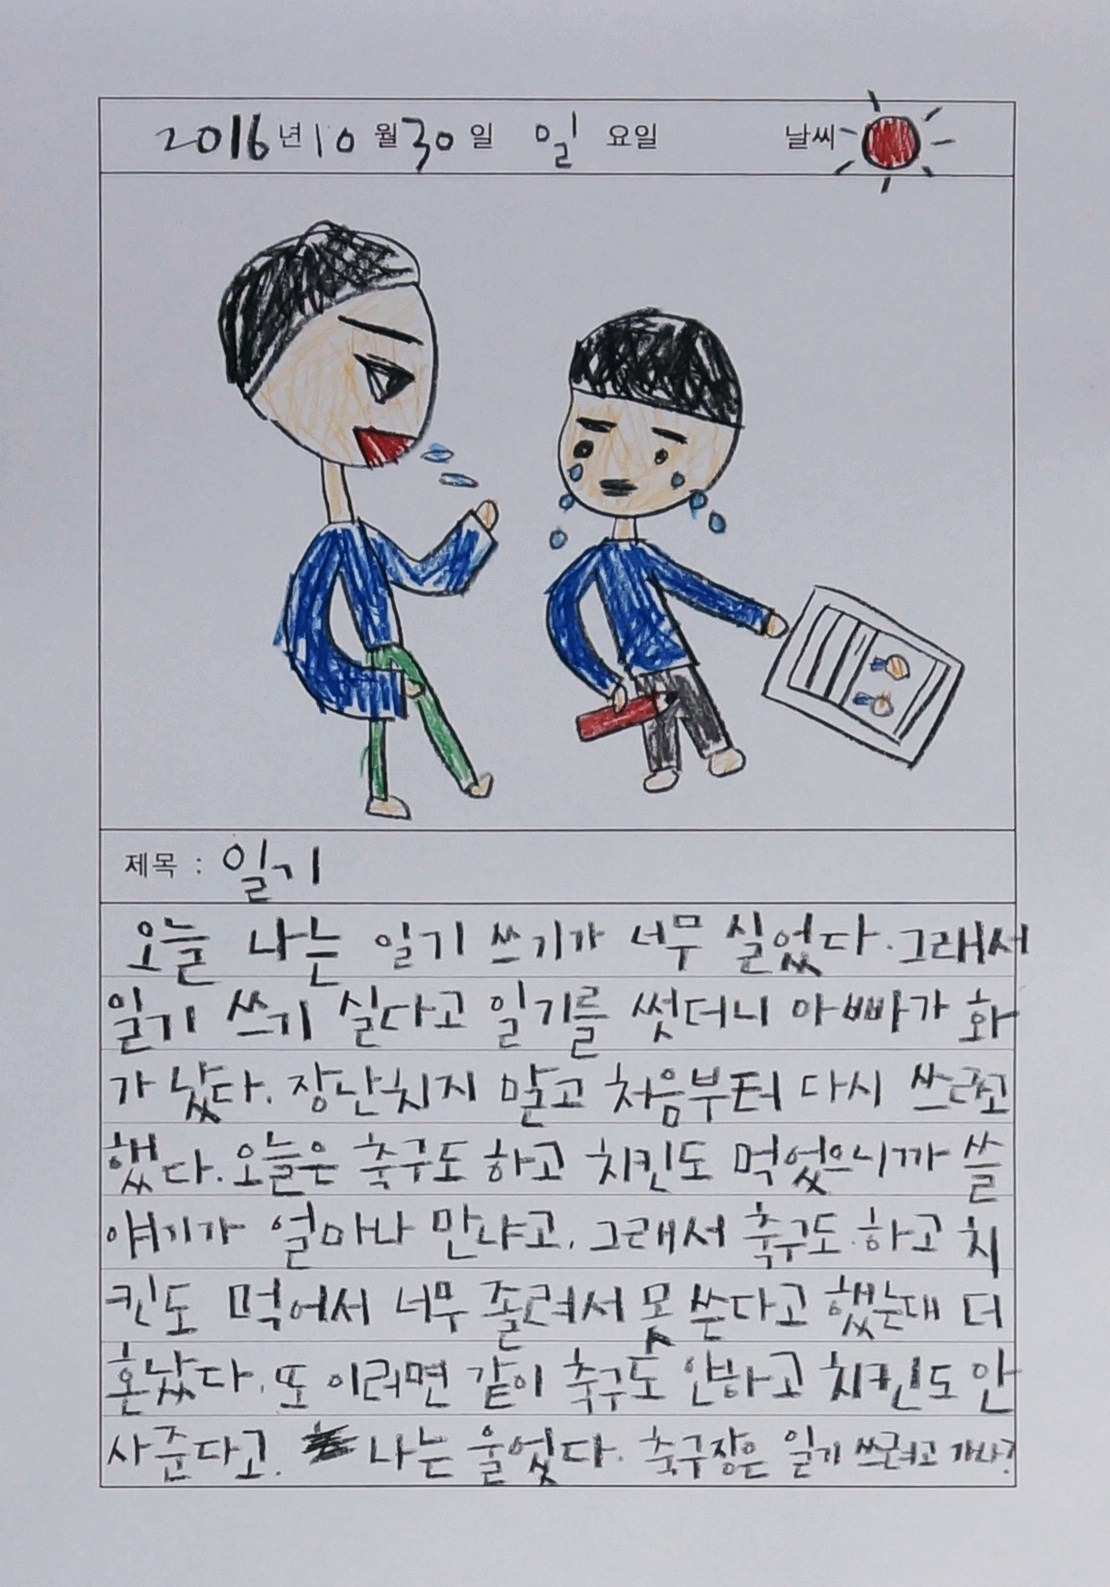 2016년 10월 30일 일요일 날씨
제목 : 일기
오늘 나는 일기 쓰기가 너무 실었다. 그래서
일기 쓰기 실다고 일기를 썻더니 아빠가 화
가 났다. 장난치지 말고 처음부터 다시 쓰라고
했다. 오늘은 축구도 하고 치킨도 먹었으니까 쓸
얘기가 얼마나 만냐고. 그래서 축구도 하고 치
킨도 먹어서 너무 졸려서 못 쓴다고 했는대 더
혼났다. 또 이러면 같이 축구도 안하고 치킨도 안
사준다고. 나는 울었다. 축구장은 일기 쓰려고 가나?